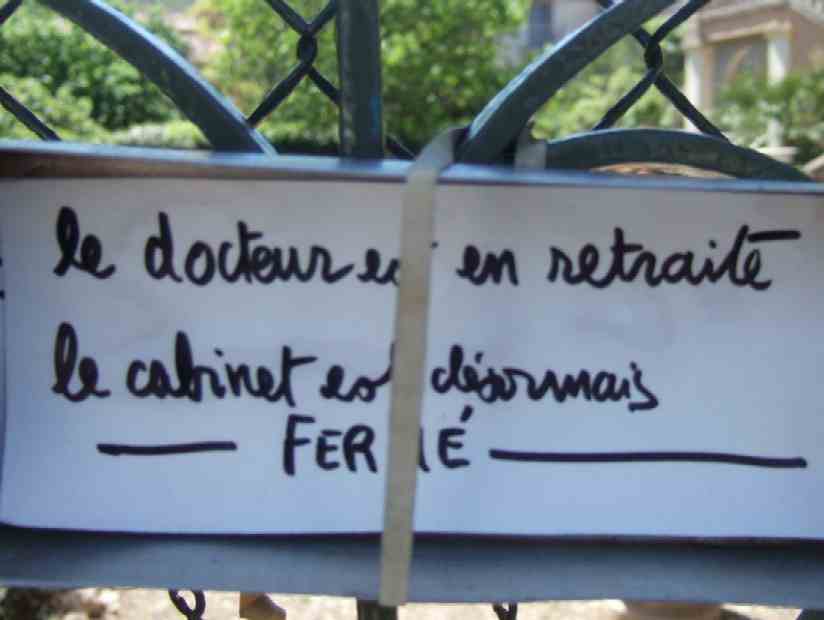 le docteur est en retraite
le cabinet est désormais
FERMÉ